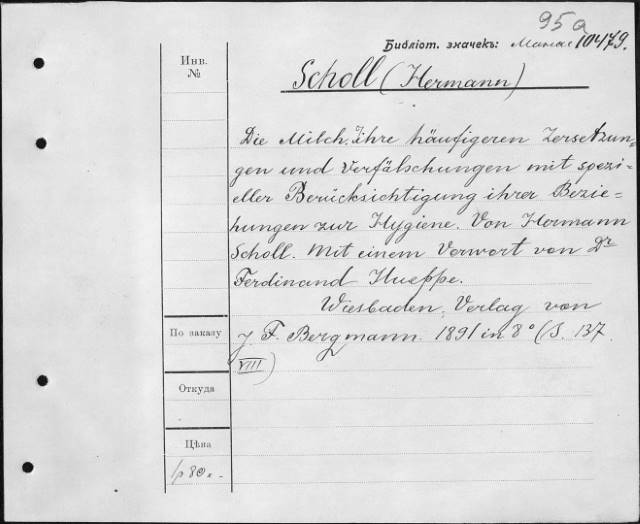 95a
Библіот. значекъ: 10479.
Инв.
№
Scholl (Hermann)
Die Milch. Ihre häufigeren Zersetzun-
gen und Verfälschungen mit spezi-
eller Berücksichtigung ihrer Bezie-
hungen zur Hygiene. Von Hermann
Scholl. Mit einem Vorwort von Dr
Ferdinand Hueppe.
Wiesbaden, Verlag von
J. F. Bergmann. 1891 in 8° (S. 137
VIII)
По заказу
Откуда
Цѣна
1р 80к.